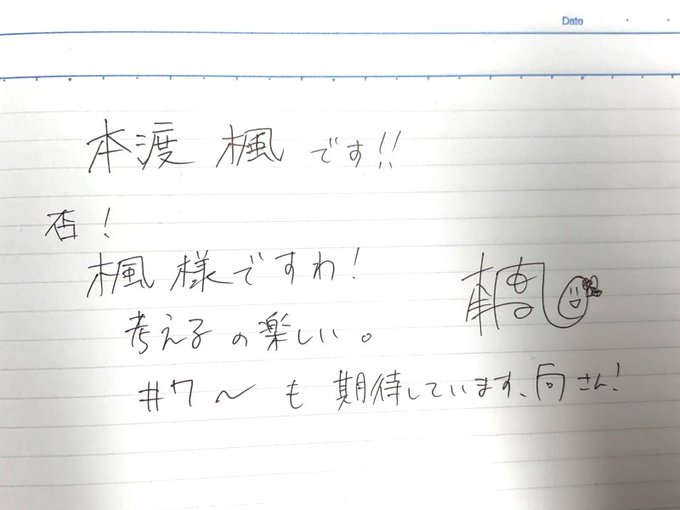 Date
本渡 楓 です!!
否!
楓 様ですわ!
考える の楽しい。
#7〜 も 期待しています、向さん!